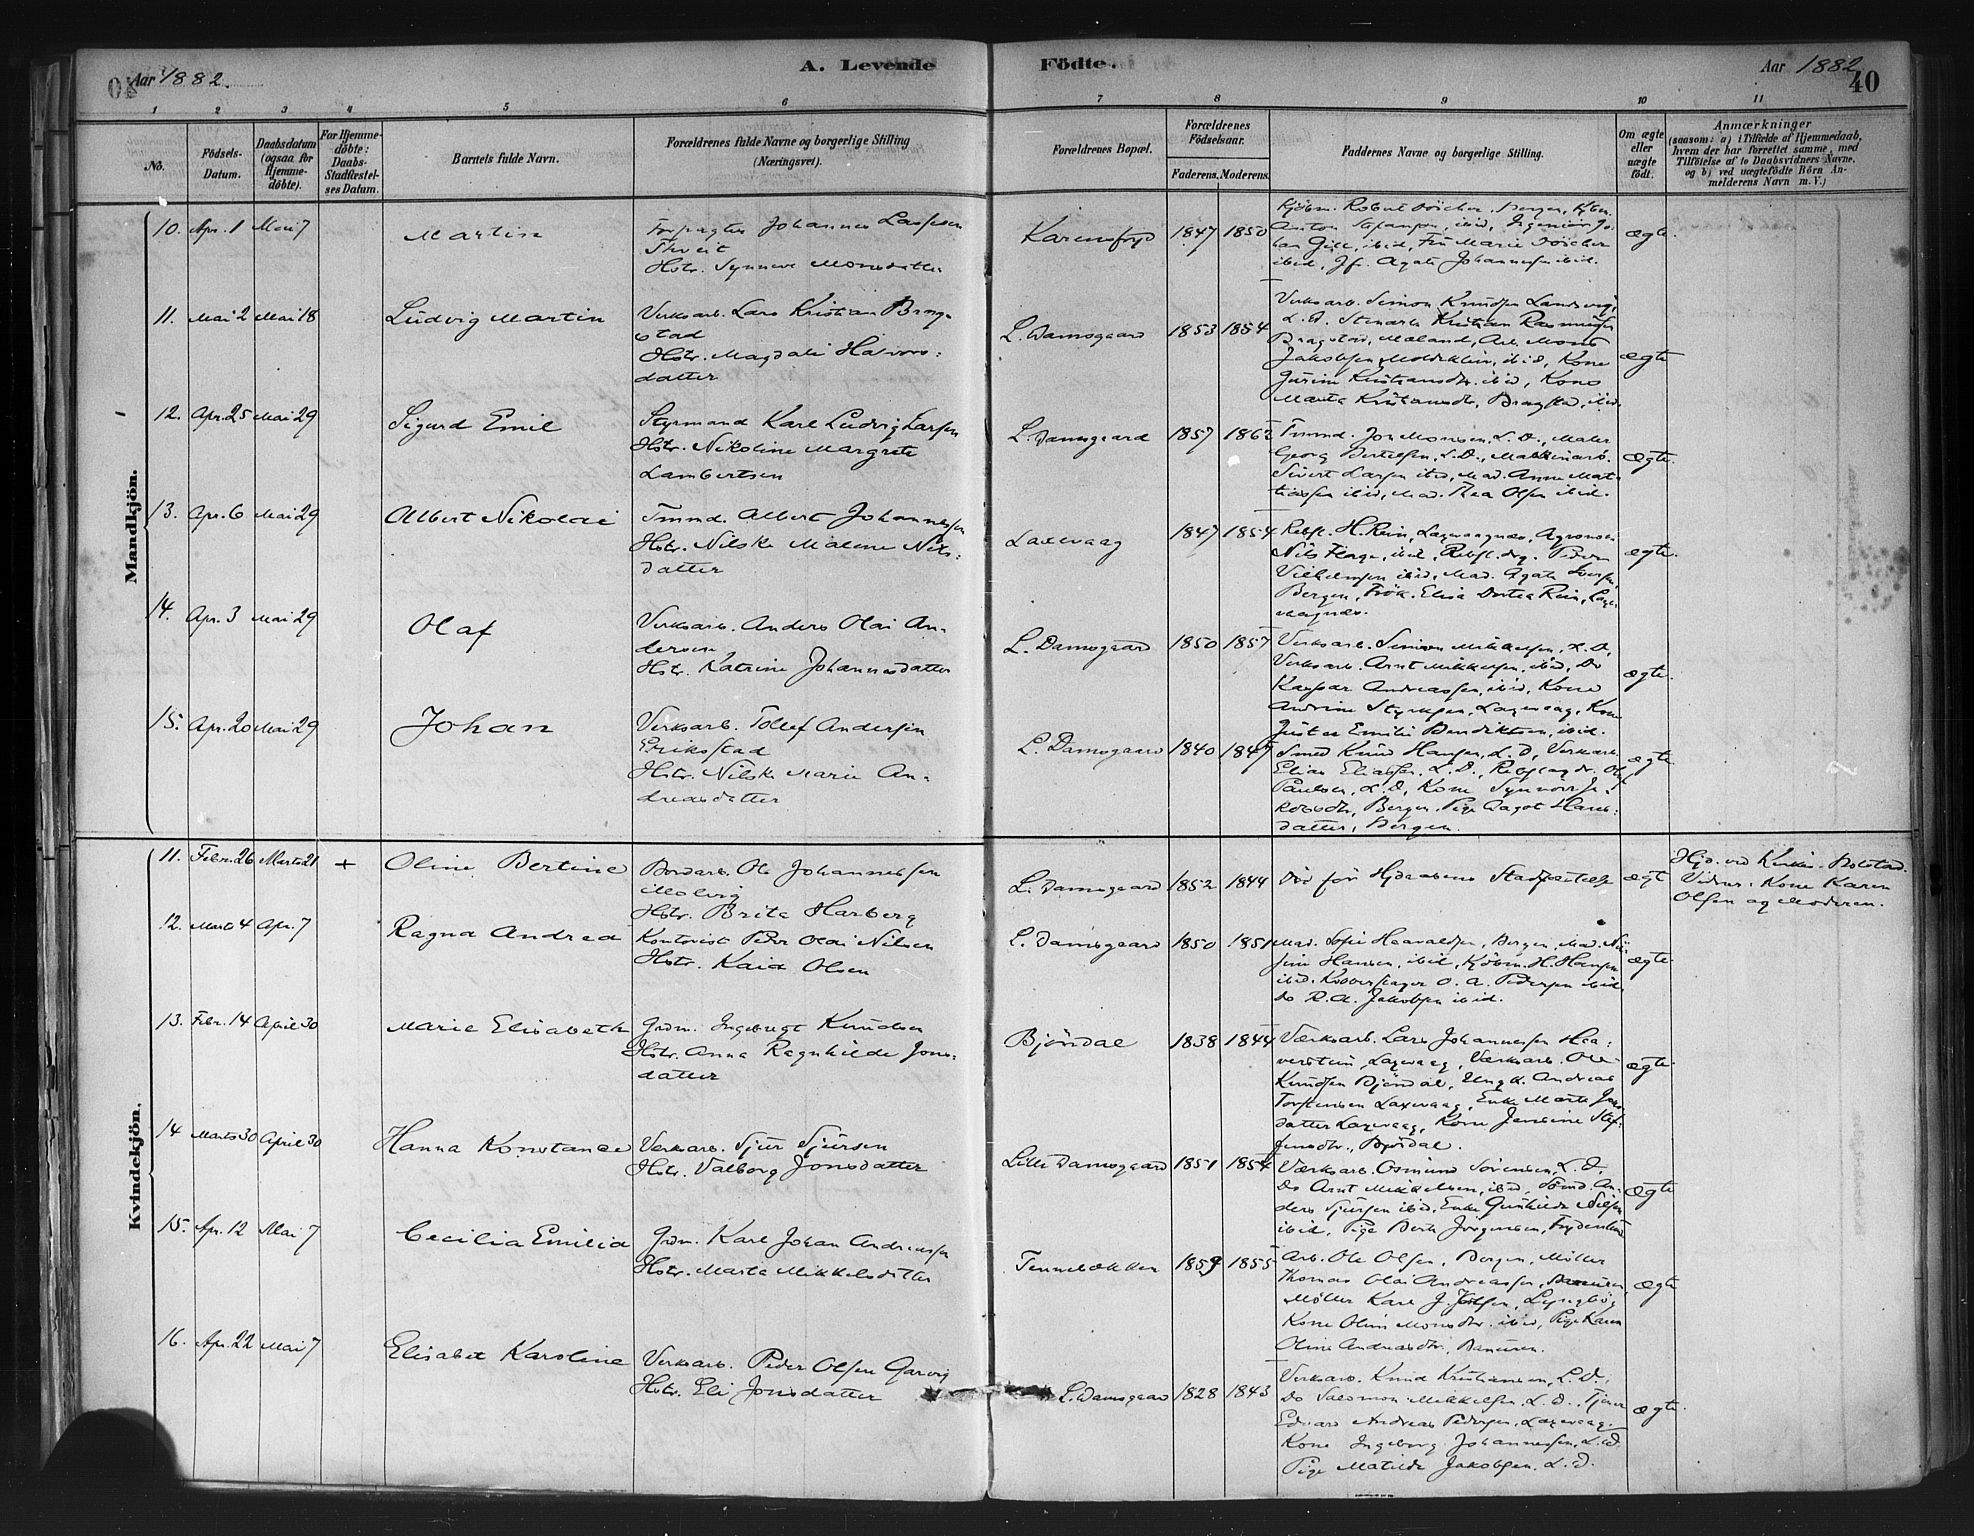 Aar 1882.
A. Levende
Födte.
Aar 1882
40
1 2 3 4 5 6 7 8 9 10 11
No.
Födsels-Datum.
Daabsdatum (ogsaa for Hjemmedöbte).
For Hjemmedöbte: Daabs-Stadfæstelses Datum.
Barnets fulde Navn.
Forældrenes fulde Navne og borgerlige Stilling (Næringsvei).
Forældrenes Bopæl.
Forældrenes Födselsaar.
Faderens. Moderens.
Faddernes Navne og borgerlige Stilling.
Om ægte eller uægte födt.
Anmærkninger
(saasom: a) i Tilfælde af Hjemmedaab, hvem der har forrettet samme, med Tilföielse af to Daabsvidners Navne, og b) ved uægtefödte Börn Anmelderens Navn m. V.)
Mandkjön.
10. Apr. 1 Mai 7
Martin
Forpagter Johannes Lassesen
Thveit
Hstr. Synneve Monsdatter
Karensfryd 1847 1850
Anton Stefansen, ibid, Ingeniör Jo-
han Gill, ibid, Fru Marie
ibid, Jf. Agate Johannesen ibid.
ægte
11. Mai 2 Mai 18
Ludvig Martin
Verksarb. Lars Kristian Brag-
stad
Hstr. Magdali Halvors-
datter
L. Damsgaard 1853 1854
Verksarb. Simon Knudsen Landsvig,
L. D. Kristian Rasmusen
Bragstad, Mæland, Arb. Mons
Jakobsen ibid, Kone
Kristiansdtr. ibid, Kone
Marta Kristiansdtr. Bragstad, ibid.
ægte
12. Apr. 25 Mai 29
Sigurd Emil
Styrmand Karl Ludvig Larsen
Hstr. Nikoline Margrete
Lambertsen
L. Damsgaard 1857 1862
Tmmd. Jon Monsen, L. D., Maler
Georg Bertelsen, L. D., Maskinarb.
Sivert Larsen ibid, Mad. Anne Mat-
tiassen ibid, Mad. Thea Olsen ibid.
ægte.
13. Apr. 6 Mai 29
Albert Nikolai
Tmmd. Albert Johannessen
Hstr. Nilske Malene Nils-
datter
Laxevaag 1847 1854
Rebsl. H. Rein, Laxevaagnæs, Agronom
Nils Hage, ibid, Rebsl. drg. Peder
Vilhelmsen ibid, Mad. Agate Iversen,
Bergen, Frök. Elisa Dortea Rein, Laxe-
vaagnæs.
ægte.
14. Apr. 3 Mai 29
Olaf
Verksarb. Anders Olai An-
dersen
Hstr. Katrine Johannesdatter
L. Damsgaard 1850 1857
Verksarb. Simon Mikkelsen, L. D.,
Verksarb. Arnt Mikkelsen, ibid, Do
Kaspar Andreassen, ibid, Kone
Andrine Styrksen, Laxevaag, Kone
Emilie Bendiktsen, ibid.
ægte.
15. Apr. 20 Mai 29
Johan
Verksarb. Tollef Andersen
Eriksstad
Hstr. Nilske Marie An-
dreasdatter
L. Damsgaard 1840 1847
Smed Knud Hansen, L. D., Verksarb.
Elias Eliassen, L. D., Rebslagdr. Olaf
Paulsen, L. D., Kone Synnöve Ja-
kobsdtr, Bergen, Pige Dagot Hans-
datter, Bergen.
ægte.
Kvindekjön.
11. Febr. 26 Marts 21 +
Oline Bertine
Bordarb. Ole Johannessen
Hstr. Brita Harberg
L. Damsgaard 1852 1844
Död för Hjdaabens Stadfæstelse
ægte
Hjd. ved Kirkes. Bolstad.
Vidner: Kone Karen
Olsen og Moderen.
12. Marts 4 Apr. 7
Ragna Andrea
Kontorist Peder Olai Nilsen
Hstr. Kaia Olsen
L. Damsgaard 1850 1851
Mad. Sofie Haavaldsen, Bergen, Mad.
Hansen, ibid, Kjöbm. H. Hansen
ibid. Kobberslager O. A. Pedersen ibid,
Do R. A. Jakobsen ibid.
ægte
13. Febr. 14 April 30
Marie Elisabeth
Grdm. Ingebregt Knudsen
Hstr. Anna Ragnhilde Jons-
datter
Bjöndal 1838 1844
Værksarb. Lars Johannessen Haa-
verstein, Laxevaag, Værksarb. Ole
Knudsen Bjöndal, Ungk. Andreas
Torstensen Laxevaag, Enke Marta Jons-
datter Laxevaag, Kone Jensine Stef-
fensdtr., Bjöndal.
ægte
14 Marts 30 April 30
Hanna Konstance
Verksarb. Sjur Sjursen
Hstr. Valborg Jonsdatter
Lille Damsgaard 1851 1854
Værksarb. Osmund Sörensen, L. D,
Do Arnt Mikkelsen, ibid, An-
ders Sjursen ibid, Enke Gunhilde Nilsen
ibid, Pige Berta Jörgensen, Frydenlund
ægte
15. Apr. 12 Mai 7
Cecilia Emilia
Grdm. Karl Johan Andreassen
Hstr. Marta Mikkelsdatter
Tennebækken 1859 1855
Arb. Ole Olsen, Bergen, Möller
Thomas Olai Andreassen,
Möller Karl J. Lyngbög
Kone Oline Monsdtr. ibid, Pige Karen
Oline Andreasdtr,
ægte
16. Apr. 22 Mai 7
Elisabet Karoline
Verksarb. Peder Olsen Garvig
Hstr. Eli Jonsdatter
L. Damsgaard 1828 1843
Verksarb. Knud Kristiansen, L. D.,
Do Salomon Mikkelsen, L. D., Tjener
Edvard Andreas Pedersen, Laxevaag,
Kone Ingeborg Johannessen, L. D.
Pige Matilde Jakobsen, L. D.
ægte.